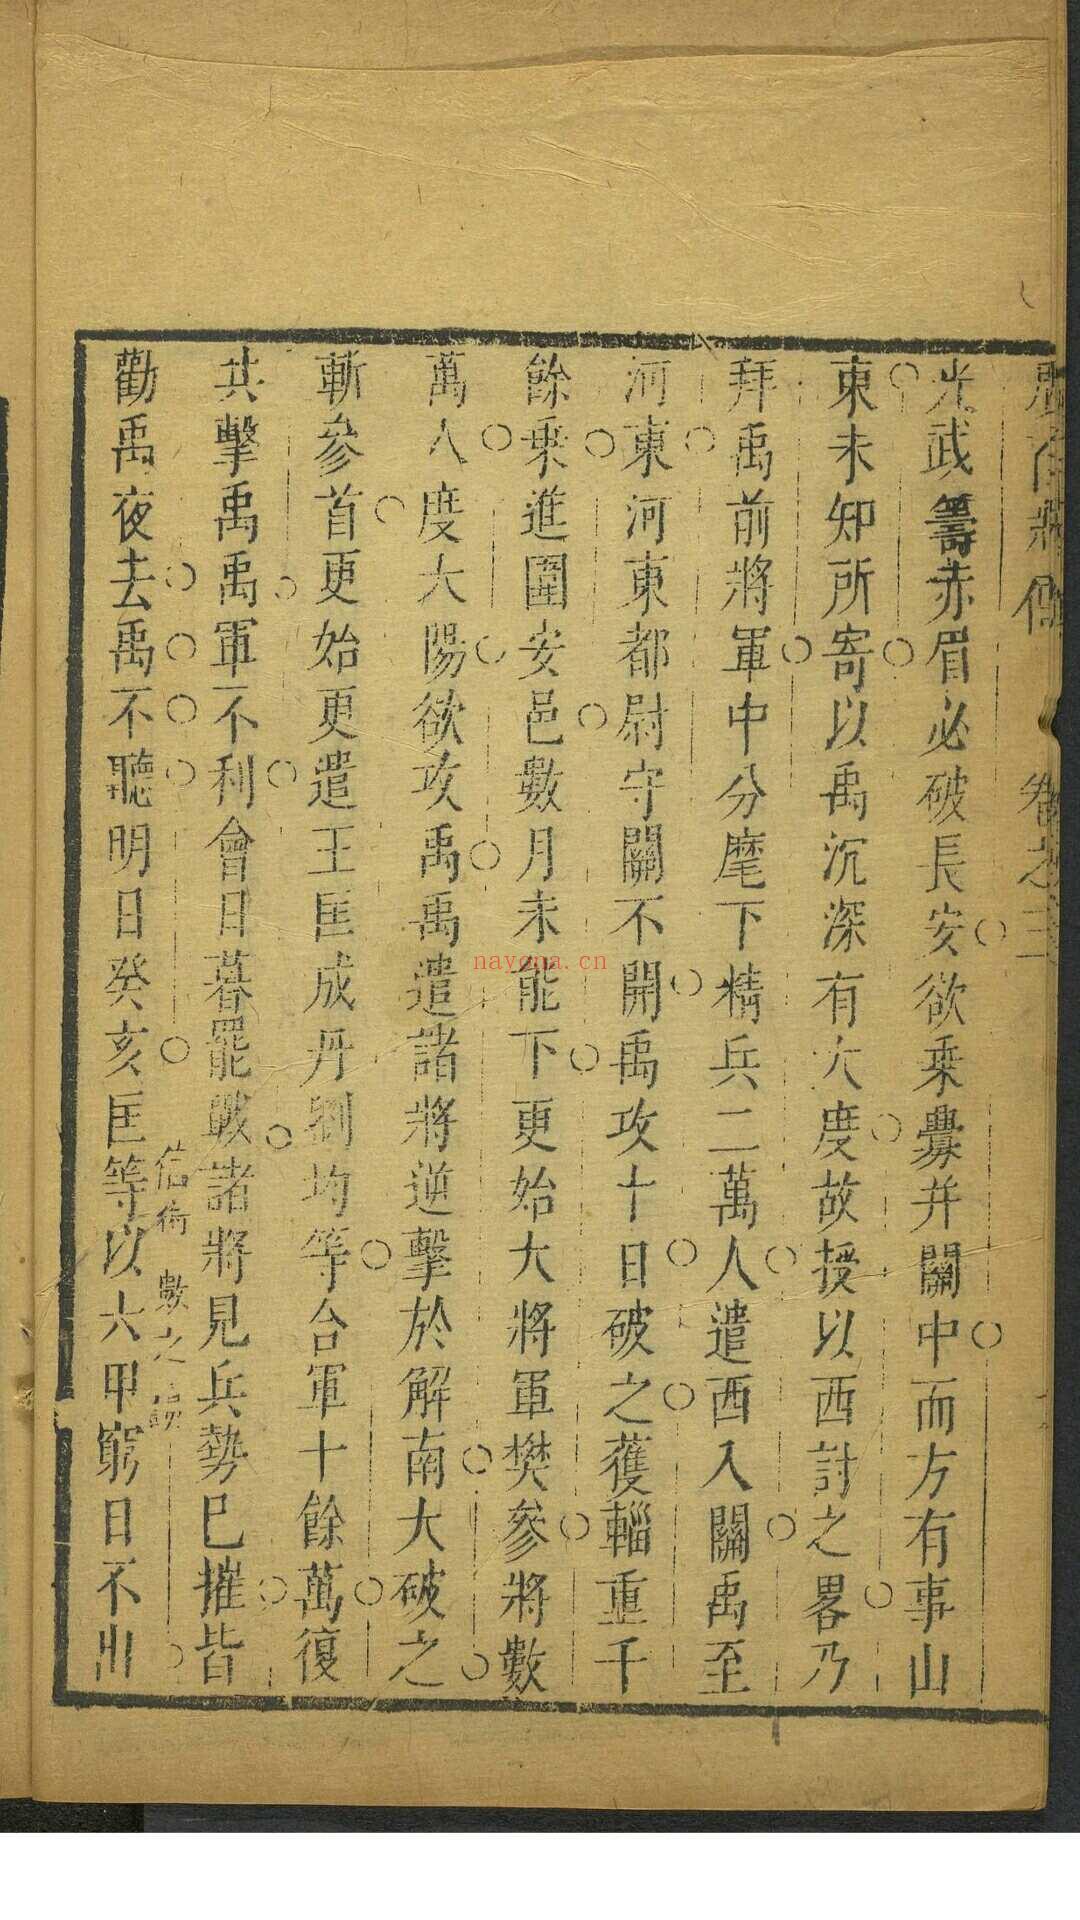 廣百將傳　卷之三
光武籌赤眉必破長安欲乘釁并關中而方有事山
東未知所寄以禹沉深有大度故授以西討之畧乃
拜禹前將軍中分麾下精兵二萬人遣西入關禹至
河東河東都尉守關不開禹攻十日破之獲輜重千
餘乗進圍安邑數月未能下更始大將軍樊參將數
萬人度大陽欲攻禹禹遣諸將逆擊於解南大破之
斬參首更始更遣王匡成丹劉均等合軍十餘萬復
共擊禹禹軍不利會日暮罷戰諸將見兵勢已摧皆
信術數之誤
勸禹夜去禹不聽明日癸亥匡等以六甲窮日不出
nayona.cn